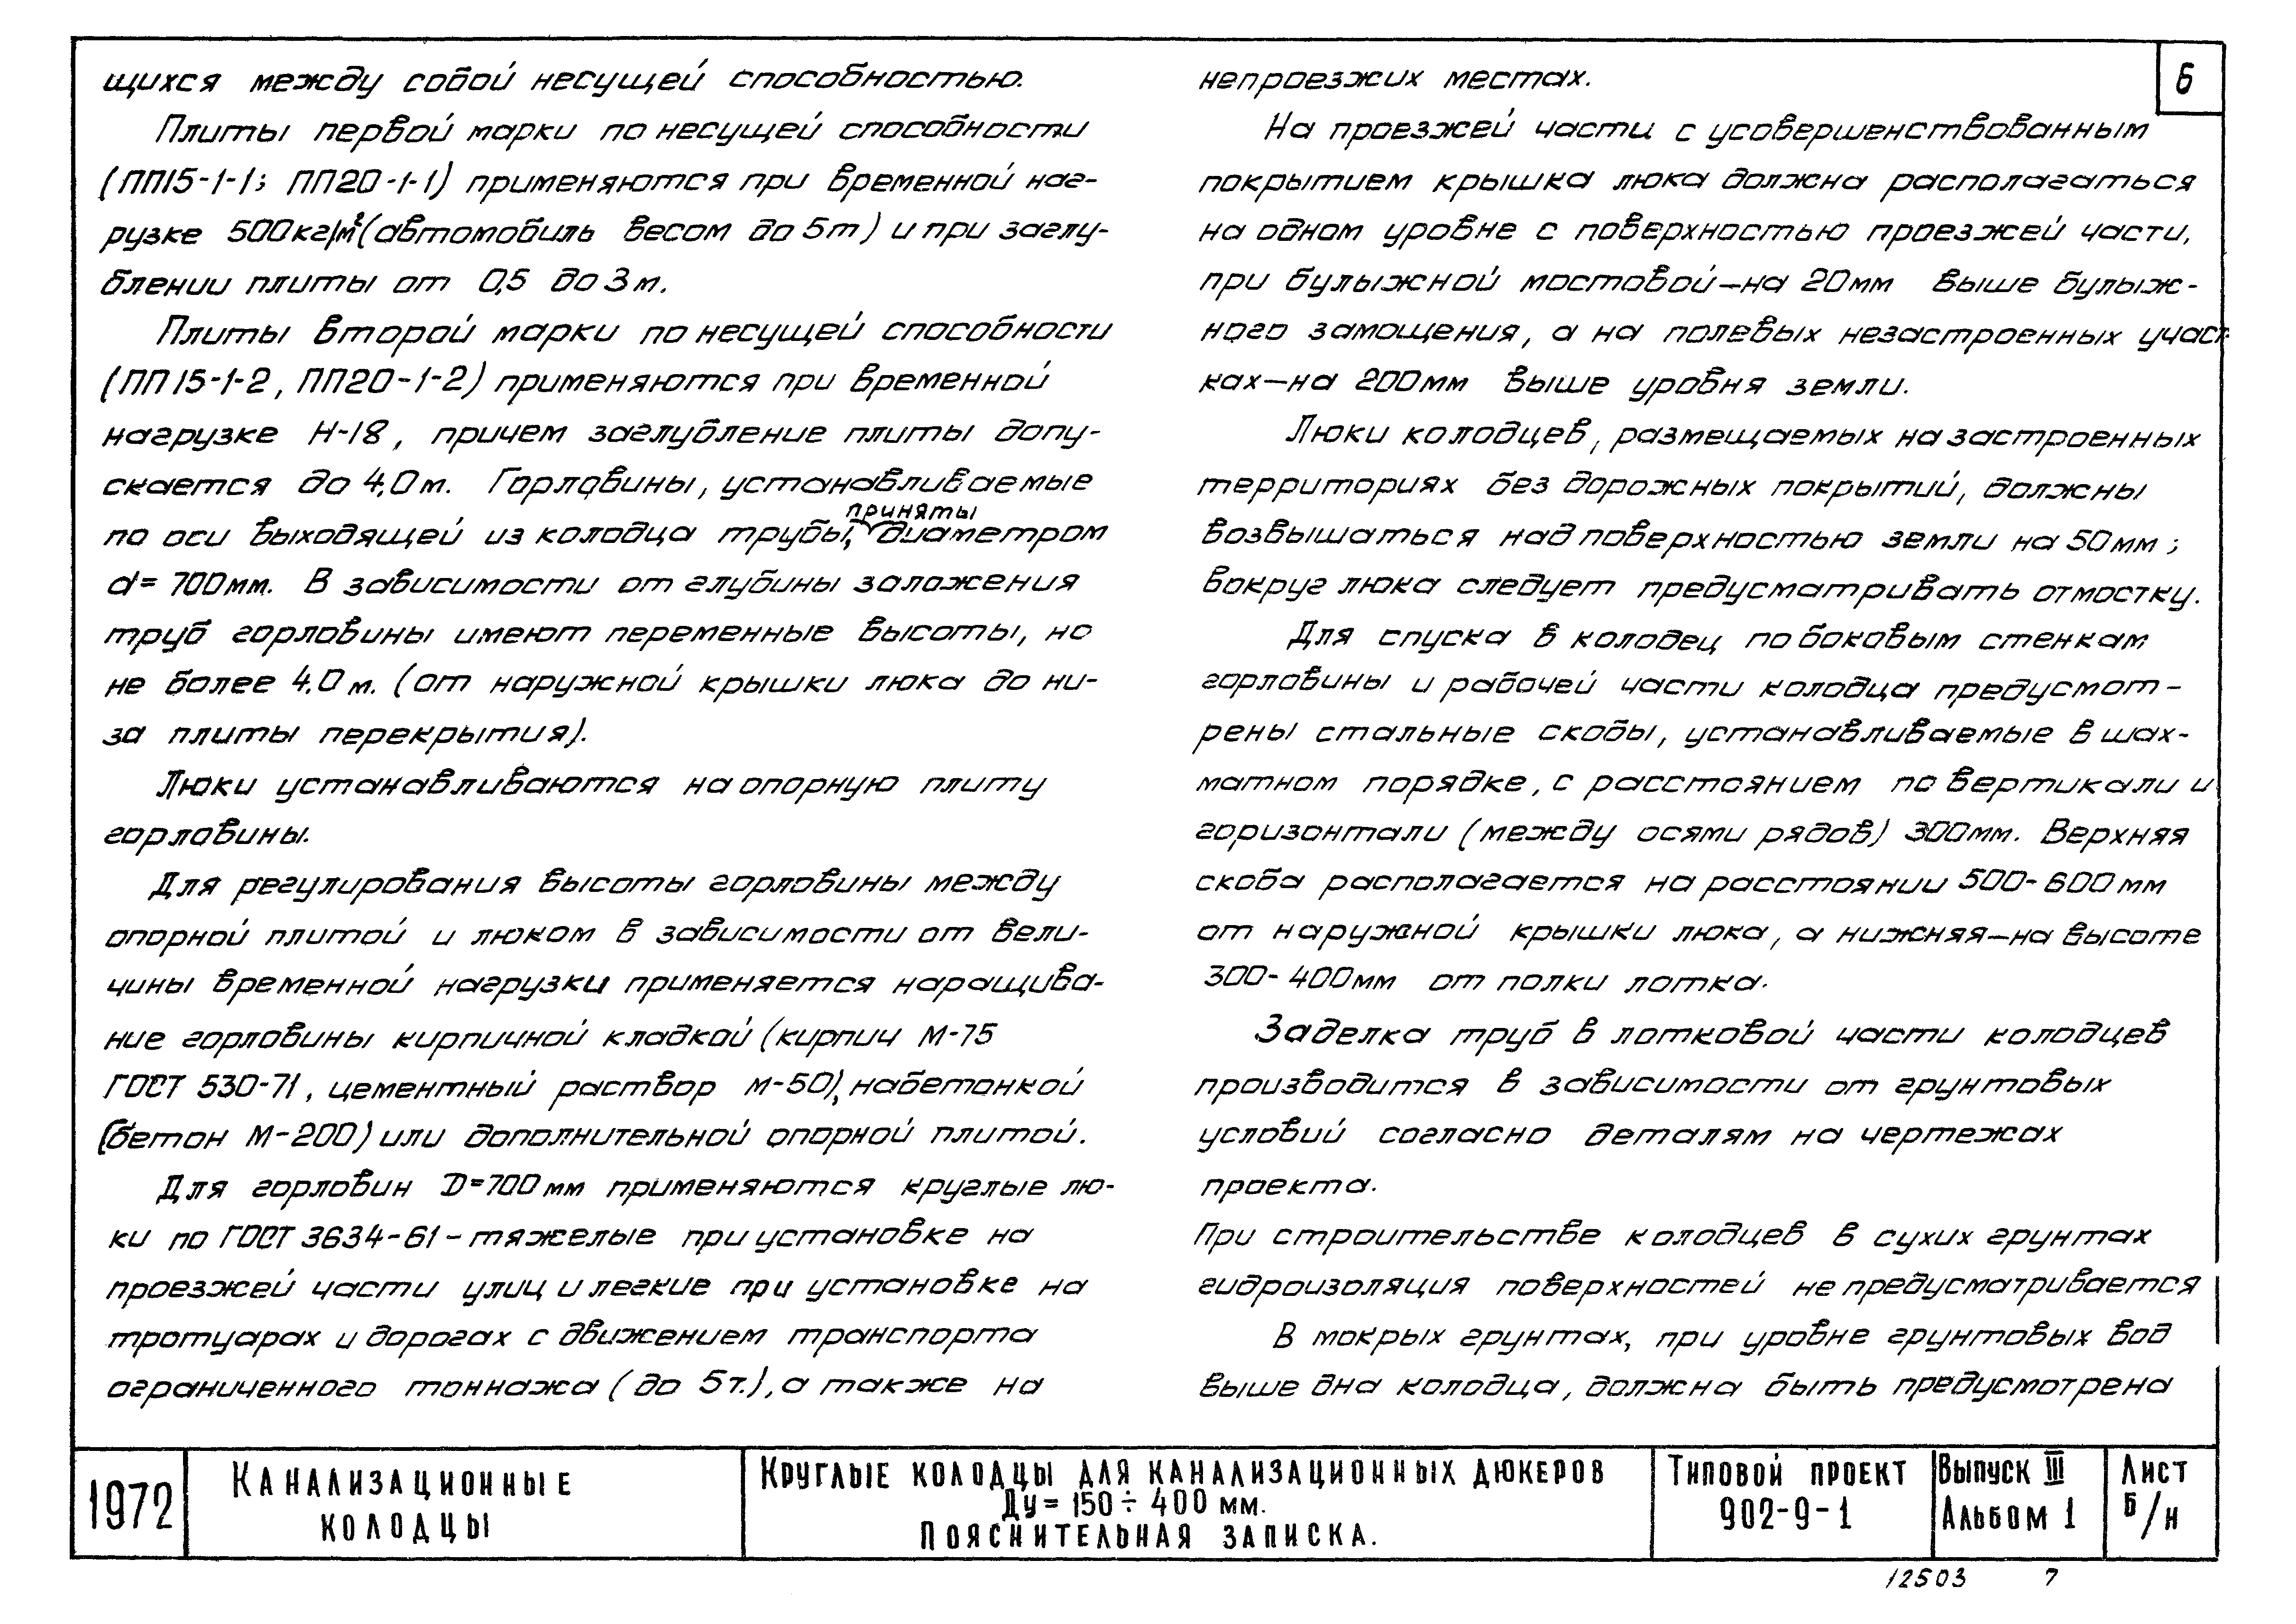 щихся между собой несущей способностью.
Плиты первой марки по несущей способности
(ПП15-1-1; ПП20-1-1) применяются при временной наг-
рузке 500кг/м² (автомобиль весом до 5т) и при заглу-
блении плиты от 0,5 до 3м.
Плиты второй марки по несущей способности
(ПП15-1-2, ПП20-1-2) применяются при временной
нагрузке Н-18, причем заглубление плиты допу-
скается до 4,0м. Горловины, устанавливаемые
приняты
по оси выходящей из колодца трубы, диаметром
d=700мм. В зависимости от глубины заложения
труб горловины имеют переменные высоты, но
не более 4.0м. (от наружной крышки люка до ни-
за плиты перекрытия).
Люки устанавливаются на опорную плиту
горловины.
Для регулирования высоты горловины между
опорной плитой и люком в зависимости от вели-
чины временной нагрузки применяется наращива-
ние горловины кирпичной кладкой (кирпич М-75
ГОСТ 530-71, цементный раствор М-50), набетонкой
(бетон М-200) или дополнительной опорной плитой.
Для горловин D=700мм применяются круглые лю-
ки по ГОСТ 3634-61 - тяжелые при установке на
проезжей части улиц и легкие при установке на
тротуарах и дорогах с движением транспорта
ограниченного тоннажа (до 5т.), а также на
непроезжих местах.
На проезжей части с усовершенствованным
покрытием крышка люка должна располагаться
на одном уровне с поверхностью проезжей части,
при булыжной мостовой—на 20мм выше булыж-
ного замощения, а на полевых незастроенных участ-
ках—на 200мм выше уровня земли.
Люки колодцев, размещаемых на застроенных
территориях без дорожных покрытий, должны
возвышаться над поверхностью земли на 50мм;
вокруг люка следует предусматривать отмостку.
Для спуска в колодец по боковым стенкам
горловины и рабочей части колодца предусмот-
рены стальные скобы, устанавливаемые в шах-
матном порядке, с расстоянием по вертикали и
горизонтали (между осями рядов) 300мм. Верхняя
скоба располагается на расстоянии 500-600мм
от наружной крышки люка, а нижняя—на высоте
300-400мм от полки лотка.
Заделка труб в лотковой части колодцев
производится в зависимости от грунтовых
условий согласно деталям на чертежах
проекта.
При строительстве колодцев в сухих грунтах
гидроизоляция поверхностей не предусматривается
В мокрых грунтах, при уровне грунтовых вод
выше дна колодца, должна быть предусмотрена
6
1972
Канализационные
колодцы
Круглые колодцы для канализационных дюкеров
Ду = 150 ÷ 400 мм.
Пояснительная записка.
Типовой проект
902-9-1
Выпуск III
Альбом 1
Лист
Б/н
12503 7